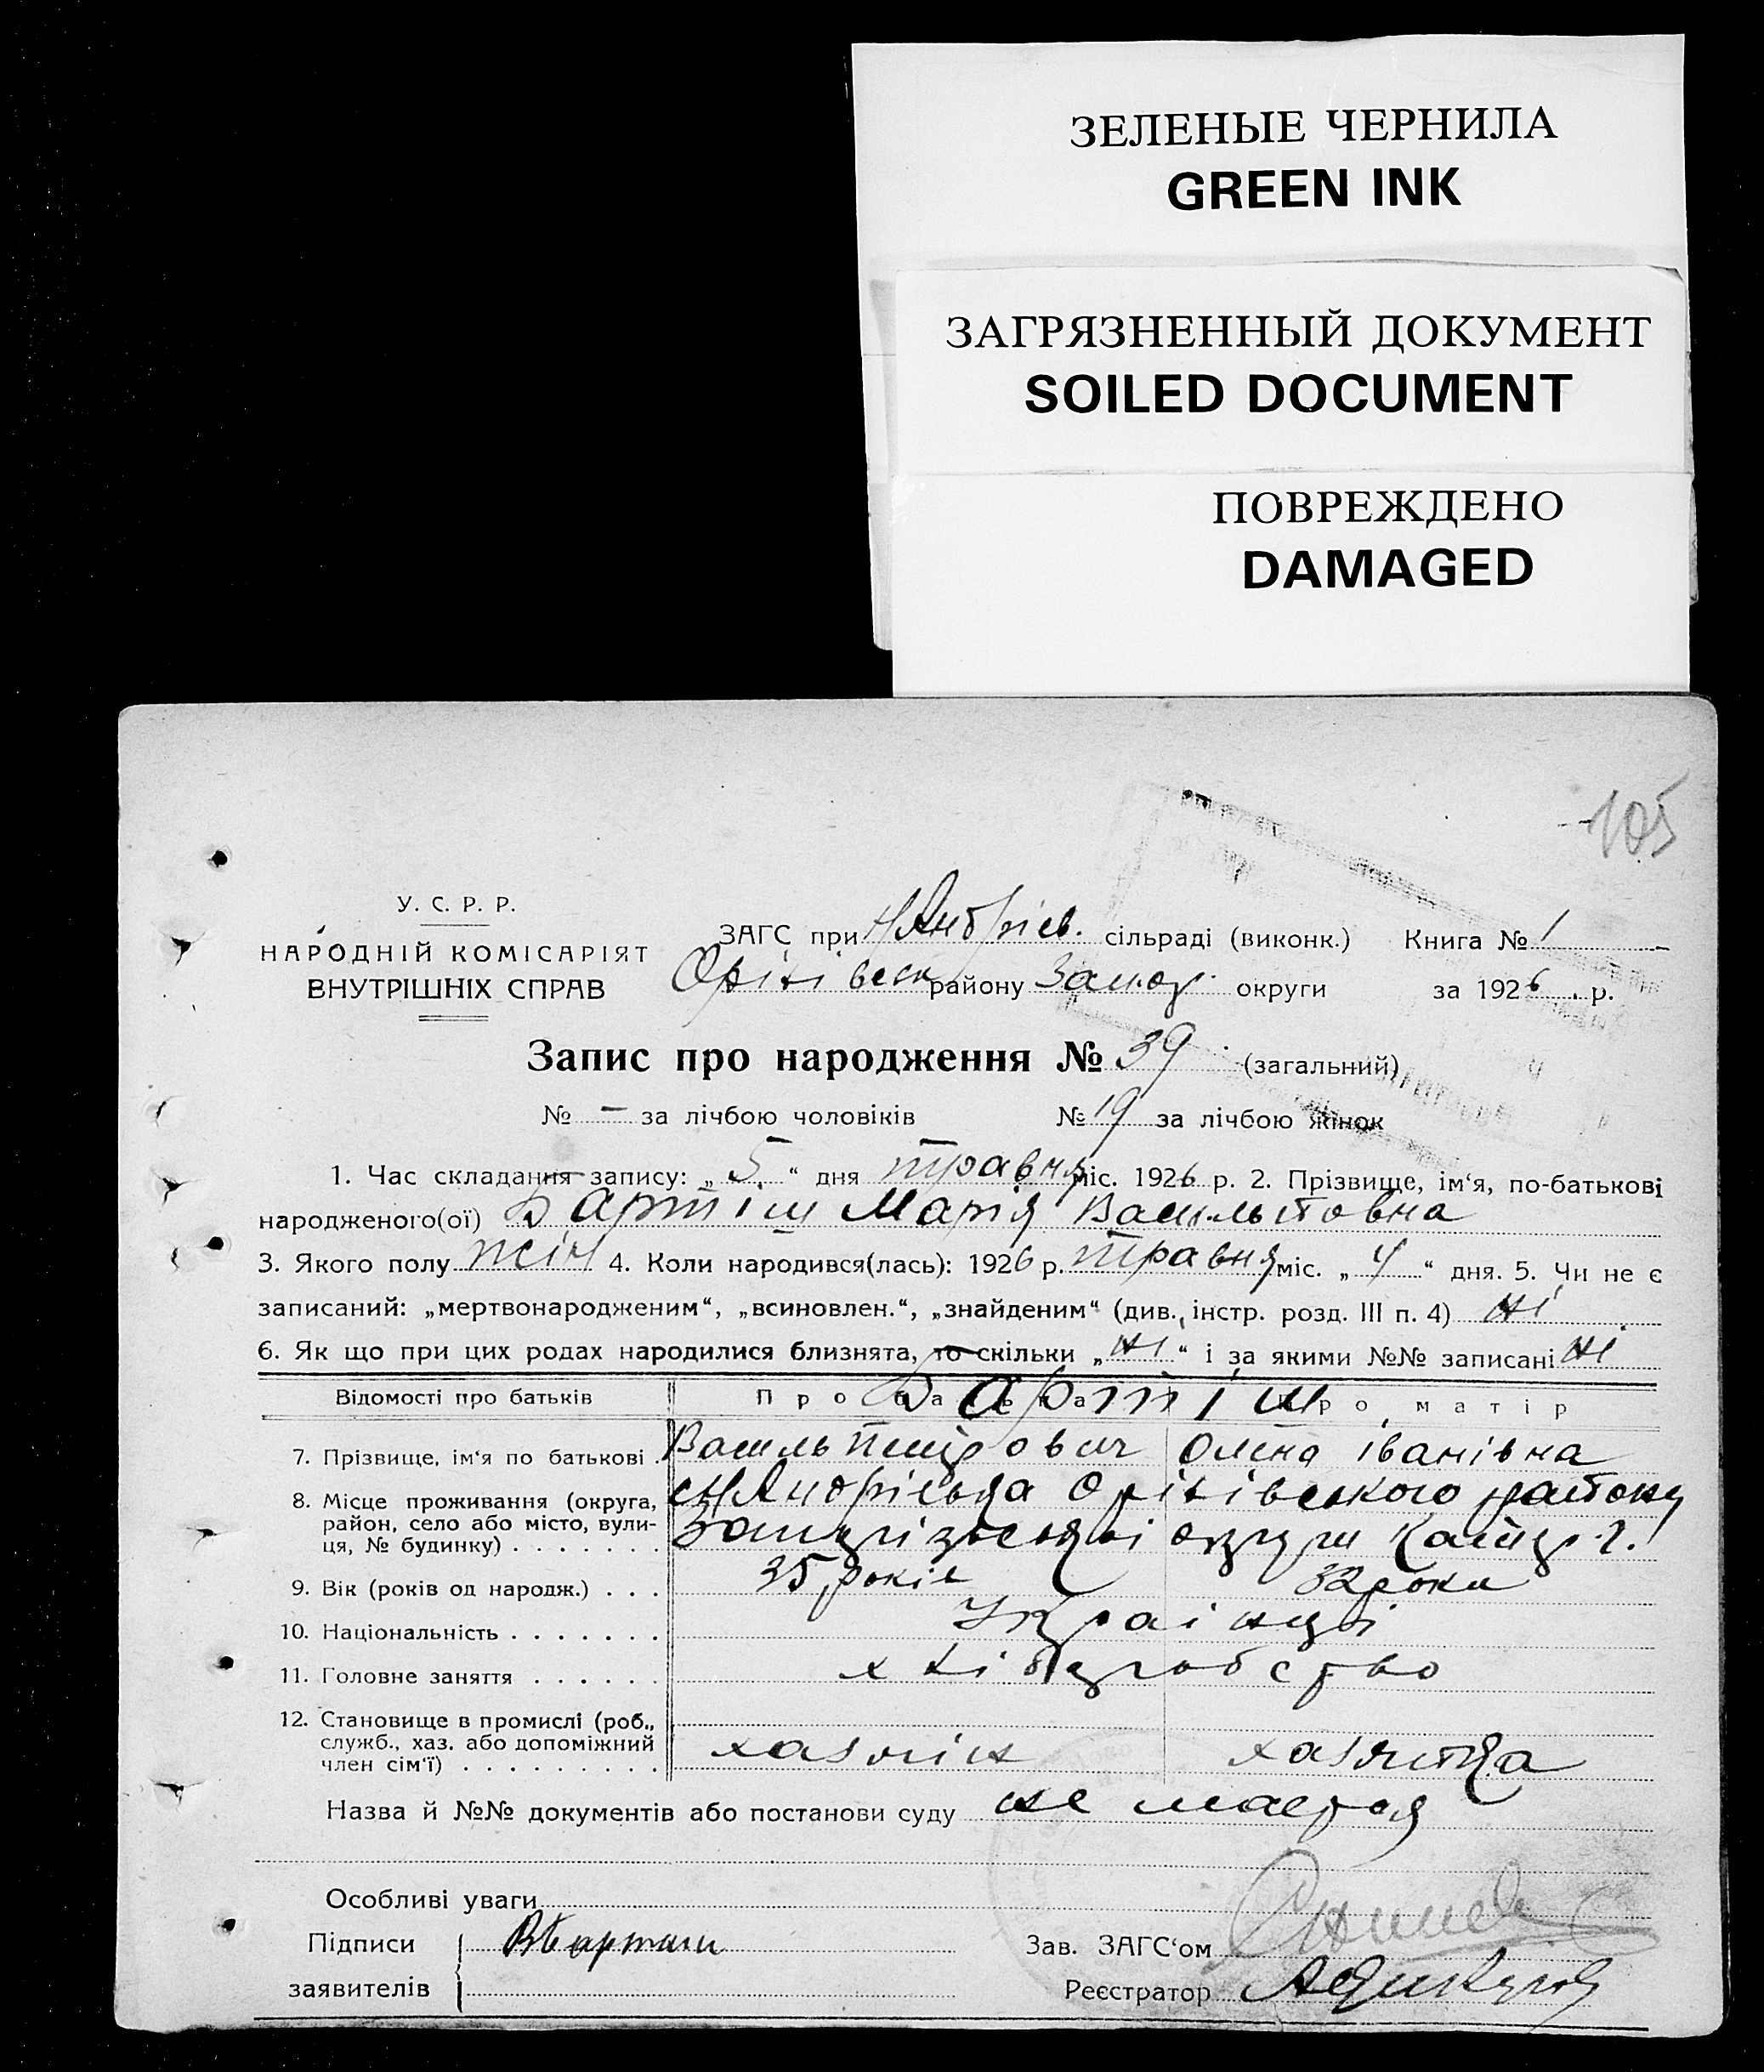 ЗЕЛЕНЫЕ ЧЕРНИЛА
GREEN INK
ЗАГРЯЗНЕННЫЙ ДОКУМЕНТ
SOILED DOCUMENT
ПОВРЕЖДЕНО
DAMAGED
105
У. С. Р. Р.
НАРОДНІЙ КОМІСАРІЯТ
ВНУТРІШНІХ СПРАВ
ЗАГС при Н Андрієв. сільраді (виконк.) Книга № 1
Оріхівськ району Запор. округи за 1926 р.
Запис про народження № 39 (загальний)
№ — за лічбою чоловіків № 19 за лічбою жінок
1. Час складання запису: „5“ дня травня міс. 1926 р. 2. Прізвище, ім‘я, по-батькові
народженого(ої) Бартіш Марія Васильовна
3. Якого полу жін 4. Коли народився(лась): 1926 р. травня міс. „4“ дня. 5. Чи не є
записаний: „мертвонародженим“, „всиновлен.“, „знайденим“ (див. інстр. розд. III п. 4) ні
6. Як що при цих родах народилися близнята, то скільки „ні“ і за якими №№ записані ні
Відомості про батьків Про батька Про матір
Бартіш
7. Прізвище, ім‘я по батькові Василь Петрович Олена Іванівна
8. Місце проживання (округа, район, село або місто, вулиця, № будинку) с Н Андрієвка Оріхівського району
Запорізської округи
9. Вік (років од народж.) 35 років 32 роки
10. Національність Українці
11. Головне заняття хліборобство
12. Становище в промислі (роб., служб., хаз. або допоміжний член сім‘ї) хазяїн хазяйка
Назва й №№ документів або постанови суду не мається
Особливі уваги
Підписи заявителів В Бартиш
Зав. ЗАГС‘ом
Реєстратор